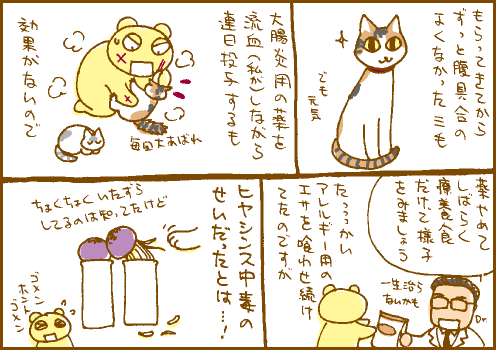 もらってきてから
ずっと腹具合の
よくなかったミも
でも
元気
大腸炎用の薬を
流血(私が)しながら
連日投与するも
効果がないので
毎回大あばれ
薬やめて
しばらく
療養食
だけで様子
をみましょう
一生治ら
ないかも
Dr.
たっっかい
アレルギー用の
エサを喰わせ続け
てたのですが
ヒヤシンス中毒の
せいだったとは…!
ちょくちょくいたずら
してるのは知ってたけど
ゴメン
ホント
ゴメン